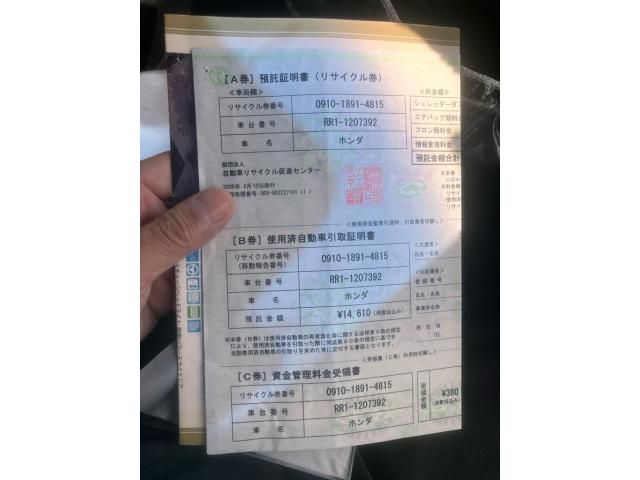 [A券] 預託証明書（リサイクル券）
≪車両欄≫
≪料金欄≫
リサイクル券番号 0910-1891-4815
シュレッダーダス
車台番号 RR1-1207392
エアバッグ類料金
フロン類料金
車名 ホンダ
情報管理料金
預託金額合計
財団法人
自動車リサイクル促進センター
<使用済自動車引渡時、引取業者切離し>
[B券] 使用済自動車引取証明書
リサイクル券番号
(移動報告番号) 0910-1891-4815
氏名・名称
車台番号 RR1-1207392
≪引取業者≫
登録番号
車名 ホンダ
氏名・名称
預託金額 ¥14,610 (消費税込み)
事業所名称
※本券（B券）は使用済自動車の再資源化等に関する法律第９条の規定
所在地
により、使用済自動車を引取った際に同法第８０条の規定に基づき
TEL
当該使用済自動車の引取りを求めた者に交付する書面となります。
<受領書（C券）利用時切離し>
[C券] 資金管理料金受領書
リサイクル券番号 0910-1891-4815
受領金額 ¥380
(消費税込み)
車台番号 RR1-1207392
車名 ホンダ